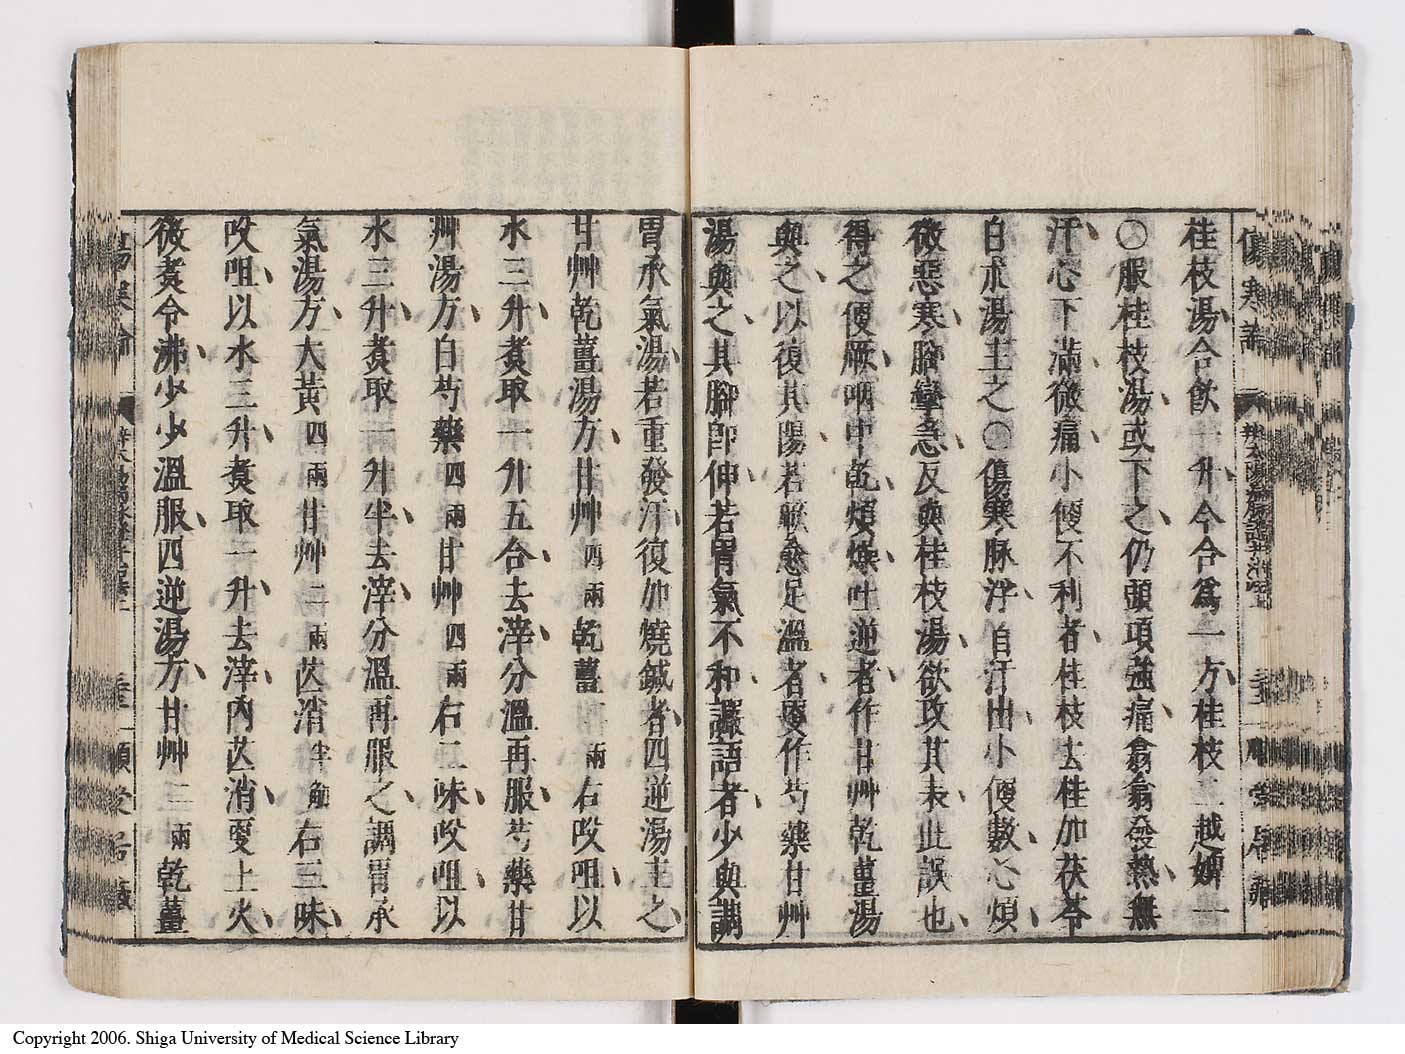 桂枝湯合飮一升今合爲一方桂枝二越婢一
〇服桂枝湯或下之仍頭項強痛翕翕發熱無
汗心下滿微痛小便不利者桂枝去桂加茯苓
白朮湯主之〇傷寒脉浮自汗出小便數心煩
微惡寒脚攣急反與桂枝湯欲攻其表此誤也
得之便厥咽中乾煩燥吐逆者作甘艸乾薑湯
與之以復其陽若厥愈足溫者更作芍藥甘艸
湯與之其脚卽伸若胃氣不和讝語者少與調
胃承氣湯若重發汗復加燒鍼者四逆湯主之
甘艸乾薑湯方甘艸四兩乾薑二兩右㕮咀以
水三升煑取一升五合去滓分溫再服芍藥甘
艸湯方白芍藥四兩甘艸四兩右二味㕮咀以
水三升煑取一升半去滓分溫再服之調胃承
氣湯方大黃四兩甘艸二兩芒消半觔右三味
㕮咀以水三升煑取一升去滓內芒消更上火
微煑令沸少少溫服四逆湯方甘艸三兩乾薑
Copyright 2006. Shiga University of Medical Science Library